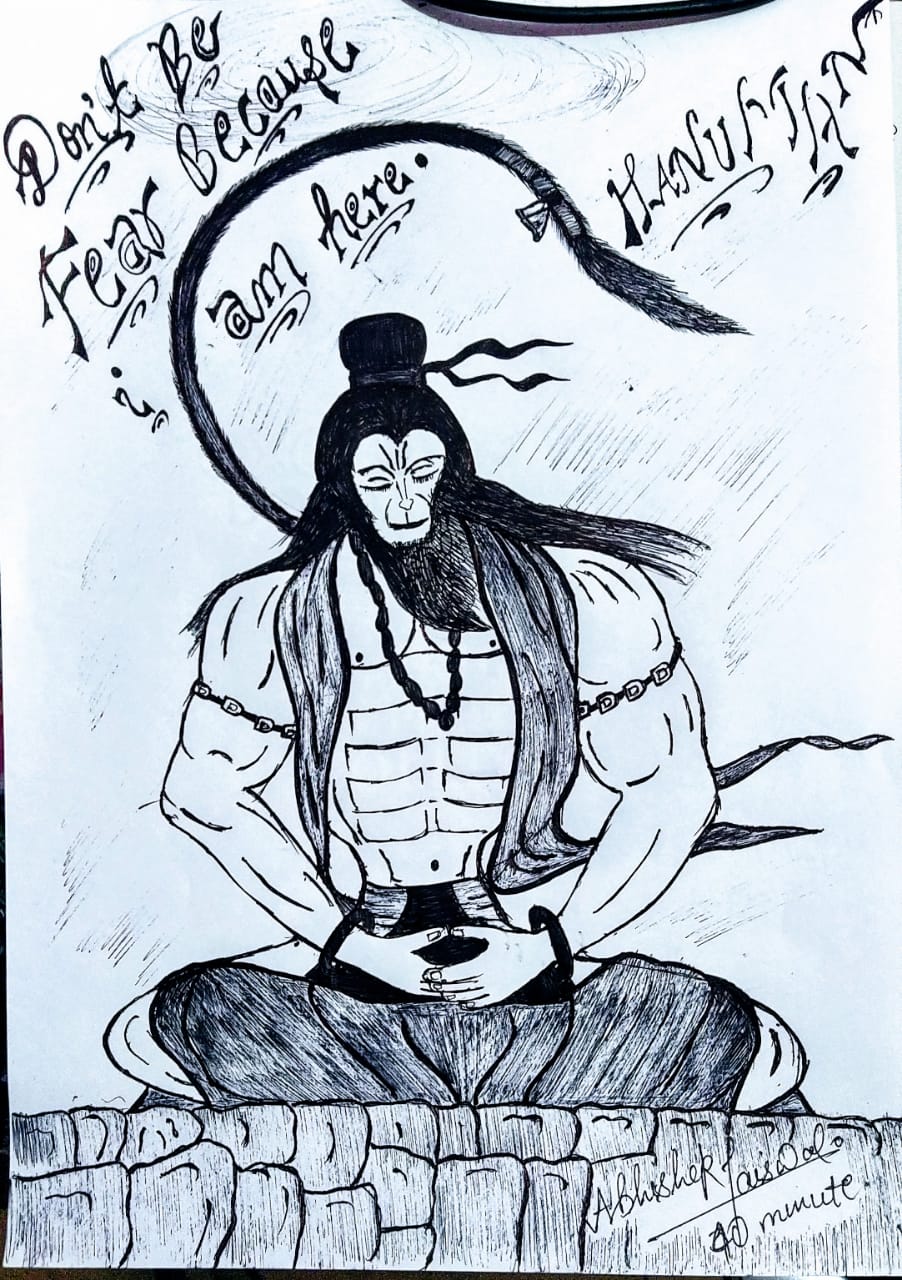 Don't Be
Fear Because
i am here.
HANUMAN
Abhishek Jaiswal.
40 minute